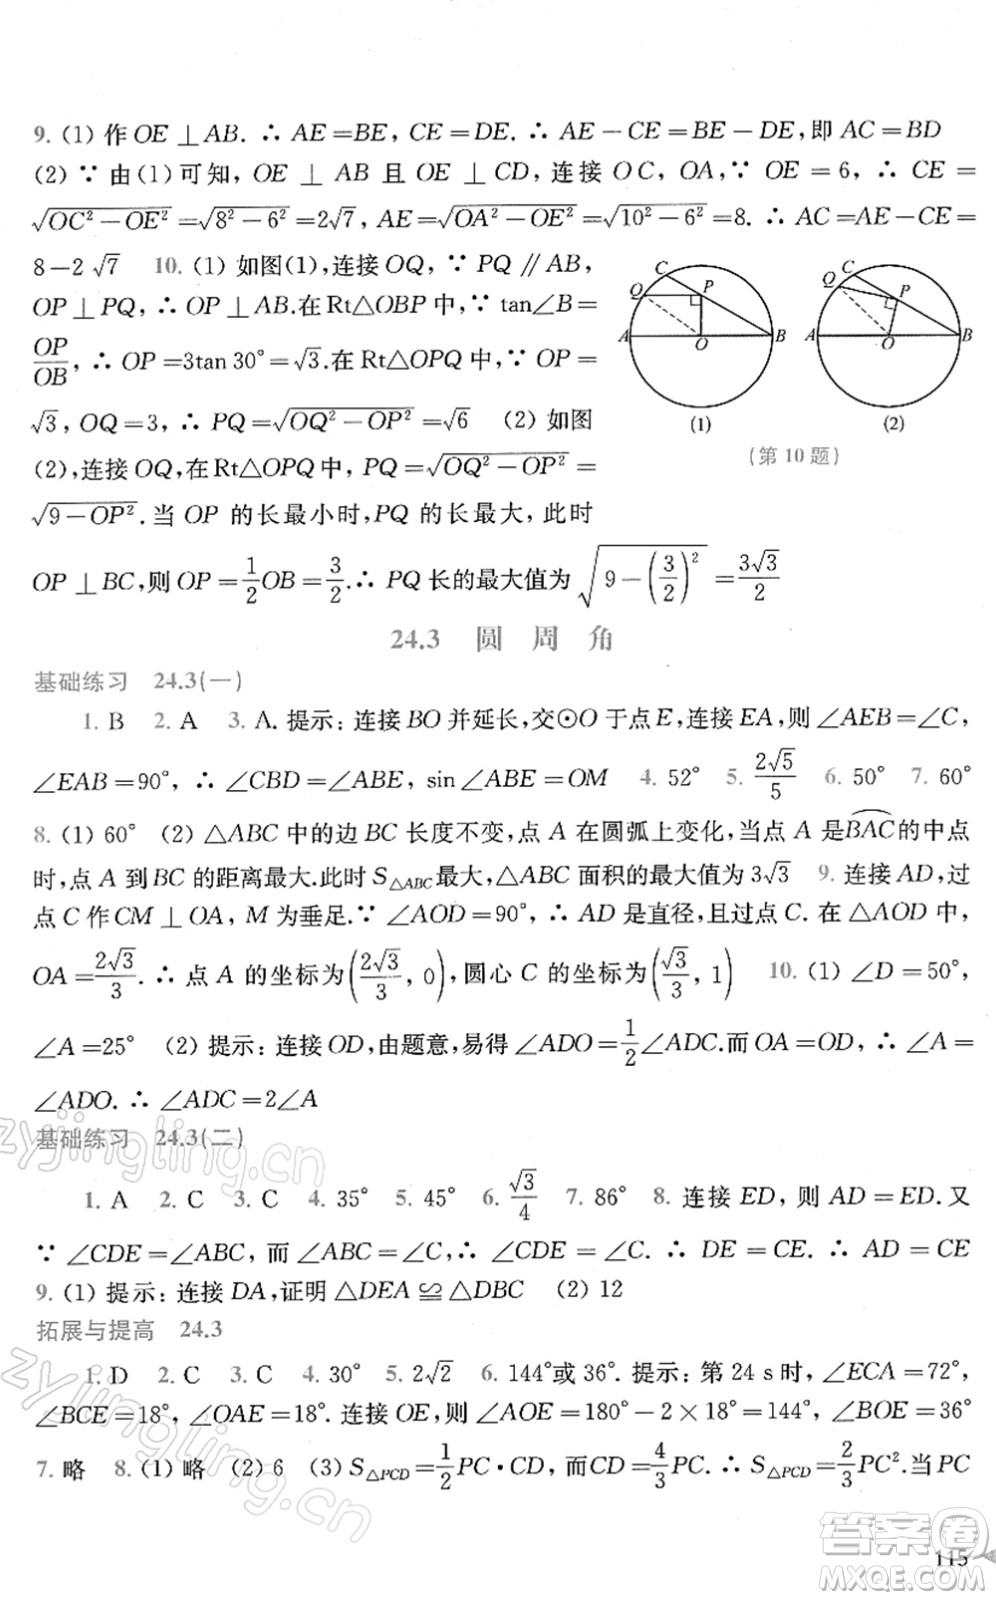 9. (1) 作 OE ⊥ AB. ∴ AE=BE, CE=DE. ∴ AE−CE=BE−DE,即 AC=BD
(2) ∵ 由(1)可知, OE ⊥ AB 且 OE ⊥ CD,连接 OC, OA, ∵ OE = 6, ∴ CE =
√(OC²−OE²)=√(8²−6²)=2√7, AE=√(OA²−OE²)=√(10²−6²)=8. ∴ AC=AE−CE=
8−2√7 10. (1) 如图(1),连接 OQ, ∵ PQ ∥ AB,
OP ⊥ PQ, ∴ OP ⊥ AB.在 Rt△OBP 中, ∵ tan∠B=
OP/OB, ∴ OP=3tan 30°=√3.在 Rt△OPQ 中, ∵ OP=
√3, OQ=3, ∴ PQ=√(OQ²−OP²)=√6 (2) 如图
(2),连接 OQ,在 Rt△OPQ 中, PQ=√(OQ²−OP²)=
√(9−OP²).当 OP 的长最小时,PQ 的长最大, 此时
OP ⊥ BC,则 OP=1/2 OB=3/2. ∴ PQ 长的最大值为 √(9−(3/2)²)=3√3/2
C Q P A O B
(1)
C Q P A O B
(2)
(第 10 题)
24.3 圆 周 角
基础练习 24.3(一)
1. B 2. A 3. A. 提示: 连接 BO 并延长,交⊙O 于点 E,连接 EA,则 ∠AEB=∠C,
∠EAB=90°, ∴ ∠CBD=∠ABE, sin∠ABE=OM 4. 52° 5. 2√5/5 6. 50° 7. 60°
8. (1) 60° (2) △ABC 中的边 BC 长度不变,点 A 在圆弧上变化,当点 A 是⌒BAC的中点
时,点 A 到 BC 的距离最大.此时 S△ABC最大,△ABC 面积的最大值为 3√3 9. 连接 AD,过
点 C 作 CM ⊥ OA, M 为垂足. ∵ ∠AOD=90°, ∴ AD 是直径,且过点 C. 在 △AOD 中,
OA=2√3/3. ∴ 点 A 的坐标为(2√3/3, 0),圆心 C 的坐标为(√3/3, 1) 10. (1) ∠D=50°,
∠A=25° (2) 提示: 连接 OD,由题意,易得 ∠ADO=1/2∠ADC.而 OA=OD, ∴ ∠A=
∠ADO. ∴ ∠ADC=2∠A
基础练习 24.3(二)
1. A 2. C 3. C 4. 35° 5. 45° 6. √3/4 7. 86° 8. 连接 ED, 则 AD=ED. 又
∵ ∠CDE=∠ABC, 而 ∠ABC=∠C,∴ ∠CDE=∠C. ∴ DE=CE. ∴ AD=CE
9. (1) 提示: 连接 DA,证明 △DEA ≌ △DBC (2) 12
拓展与提高 24.3
1. D 2. C 3. C 4. 30° 5. 2√2 6. 144°或 36°. 提示: 第 24 s 时, ∠ECA=72°,
∠BCE=18°, ∠OAE=18°. 连接 OE,则 ∠AOE=180°−2×18°=144°, ∠BOE=36°
7. 略 8. (1) 略 (2) 6 (3) S△PCD=1/2 PC·CD, 而CD=4/3 PC. ∴ S△PCD=2/3 PC².当 PC
115
zyjingling.cn
zyjingling.cn
答案卷
MXQE.COM